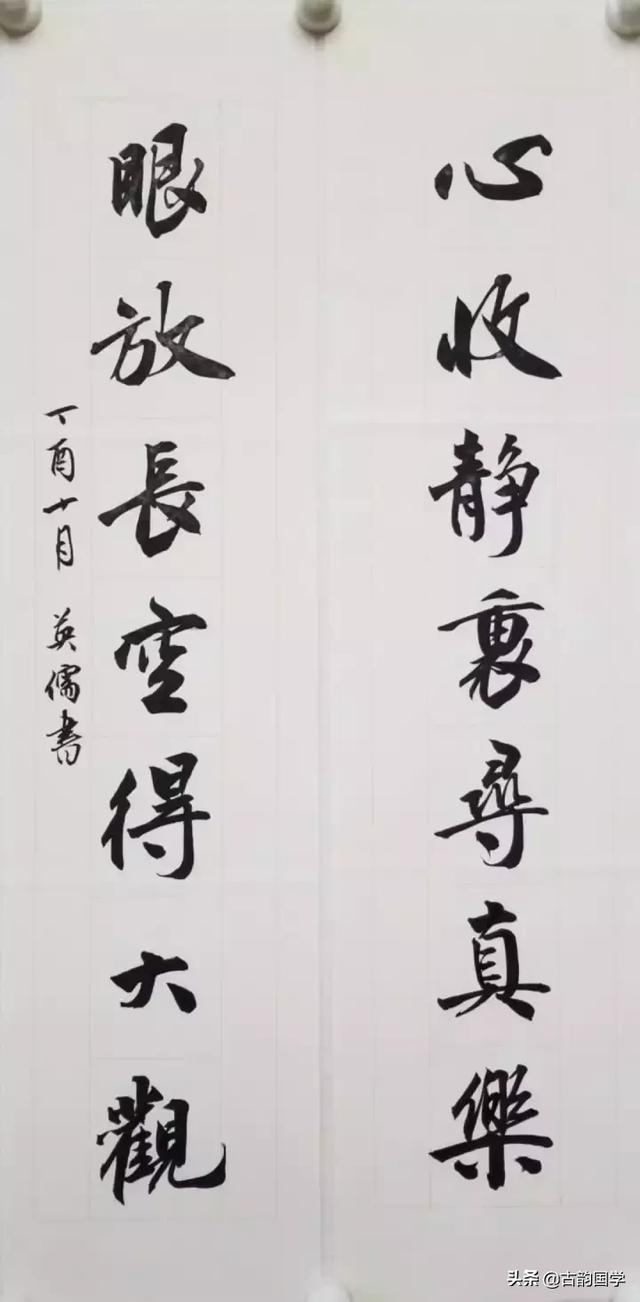 心收静裏尋真樂
眼放長空得大觀
丁酉十月 英儒書
头条 @古韵国学